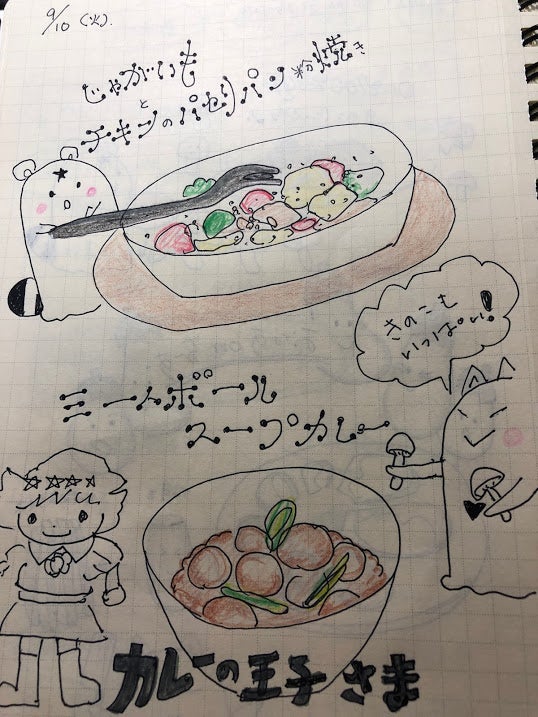 9/10(火).
じゃがいも
と
チキンのパセリパン粉焼き
きのこも
いっぱい!
ミートボール
スープカレー
カレーの王子さま